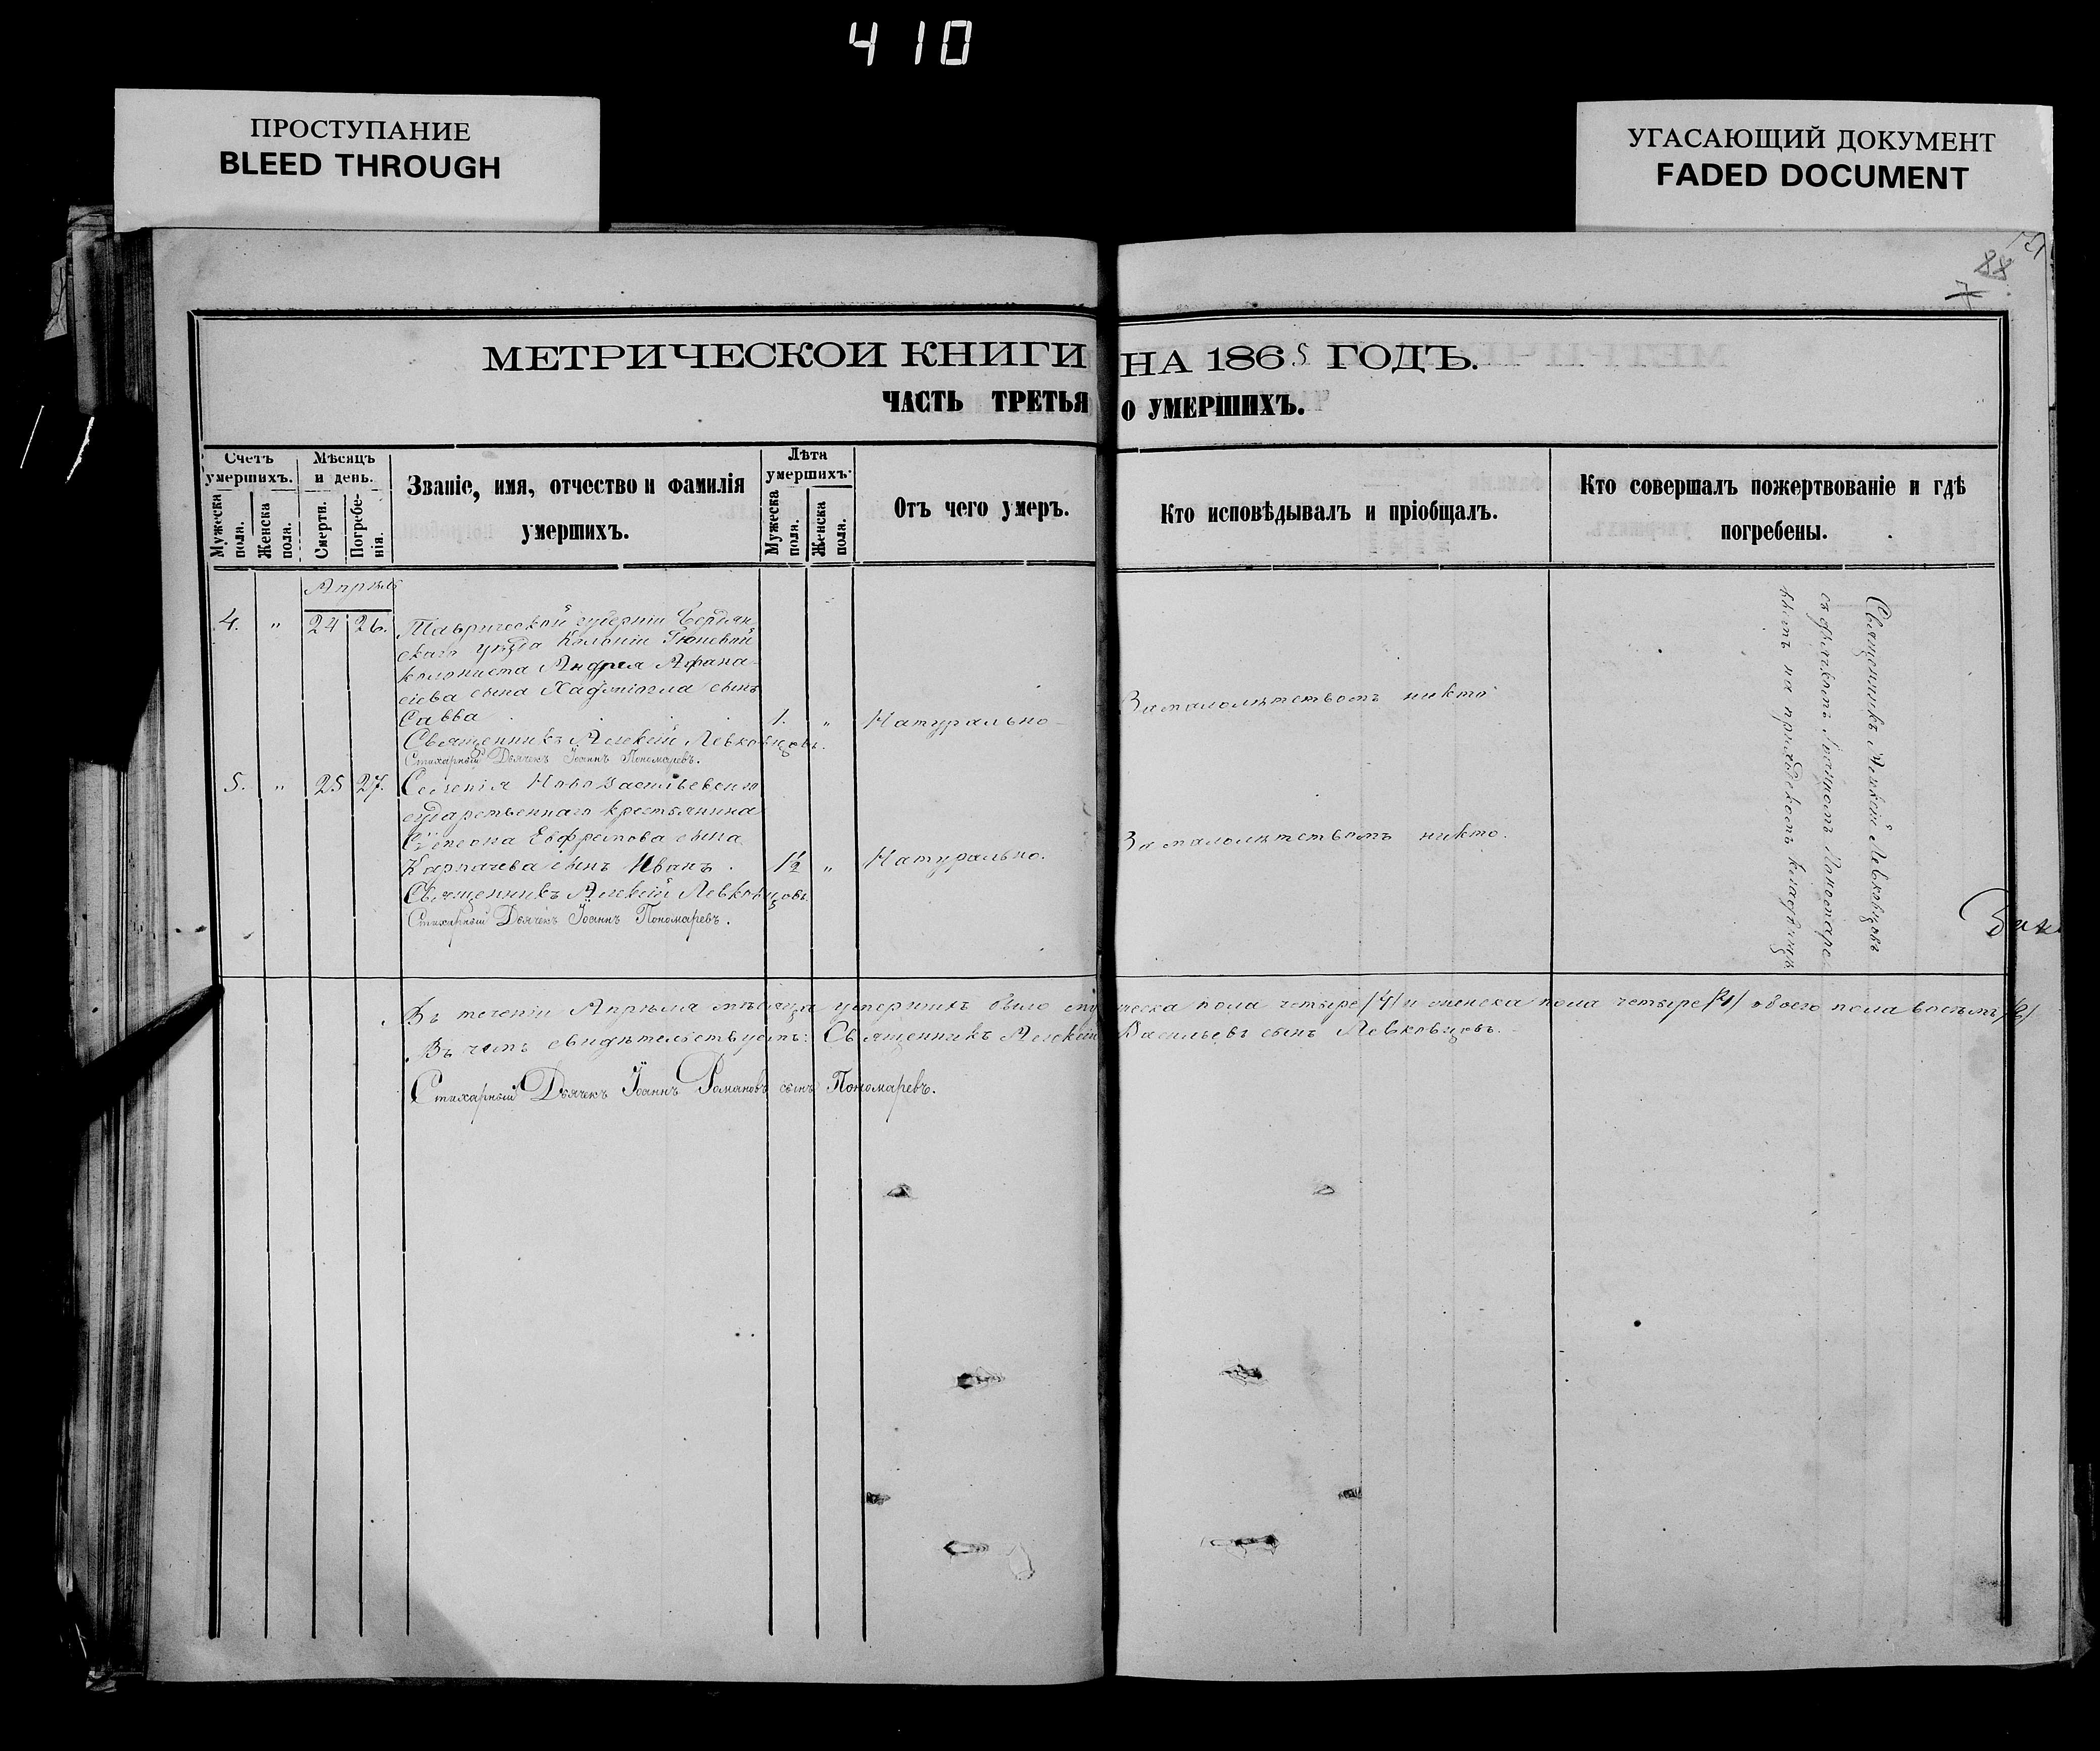 410
ПРОСТУПАНИЕ
BLEED THROUGH
УГАСАЮЩИЙ ДОКУМЕНТ
FADED DOCUMENT
88
МЕТРИЧЕСКОЙ КНИГИ НА 1865 ГОДЪ.
ЧАСТЬ ТРЕТЬЯ О УМЕРШИХЪ.
Счетъ умершихъ.
Мужеска пола.
Женска пола.
Мѣсяцъ и день.
Смерти.
Погребенія.
Званіе, имя, отчество и фамилія умершихъ.
Лѣта умершихъ:
Мужеска пола.
Женска пола.
Отъ чего умеръ.
Кто исповѣдывалъ и пріобщалъ.
Кто совершалъ пожертвованіе и гдѣ погребены.
Апрѣль
4. " 24 26. Таврической губерніи Бердян
скаго уѣзда Колоніи
колониста Андрея Афана-
сіева сына сынъ
Савва 1. " Натурально
Замалолѣтствомъ никто
Священникъ Алексій Левковцовъ.
Стихарный Дьячекъ Іоаннъ Пономаревъ.
5. " 25 27. Селенія
государственнаго крестьянина
Сѵмеона Евфремова сына
Карпачева сынъ Иванъ. 1½ " Натурально.
Замалолѣтствомъ никто.
Священникъ Алексій Левковцовъ
Стихарный Дьячекъ Іоаннъ Пономаревъ.
Священникъ Алексій Левковцовъ
съ дьячкомъ Іоанномъ Пономаре-
вымъ на приходскомъ кладбищѣ
Въ теченіи Апрѣля мѣсяца умершихъ было мужеска пола четыре /4/ и женска пола четыре /4/ обоего пола восемь /8/
Въ чемъ свидѣтельствуемъ: Священникъ Алексій Васильевъ сынъ Левковцовъ.
Стихарный Дьячекъ Іоаннъ Романовъ сынъ Пономаревъ.